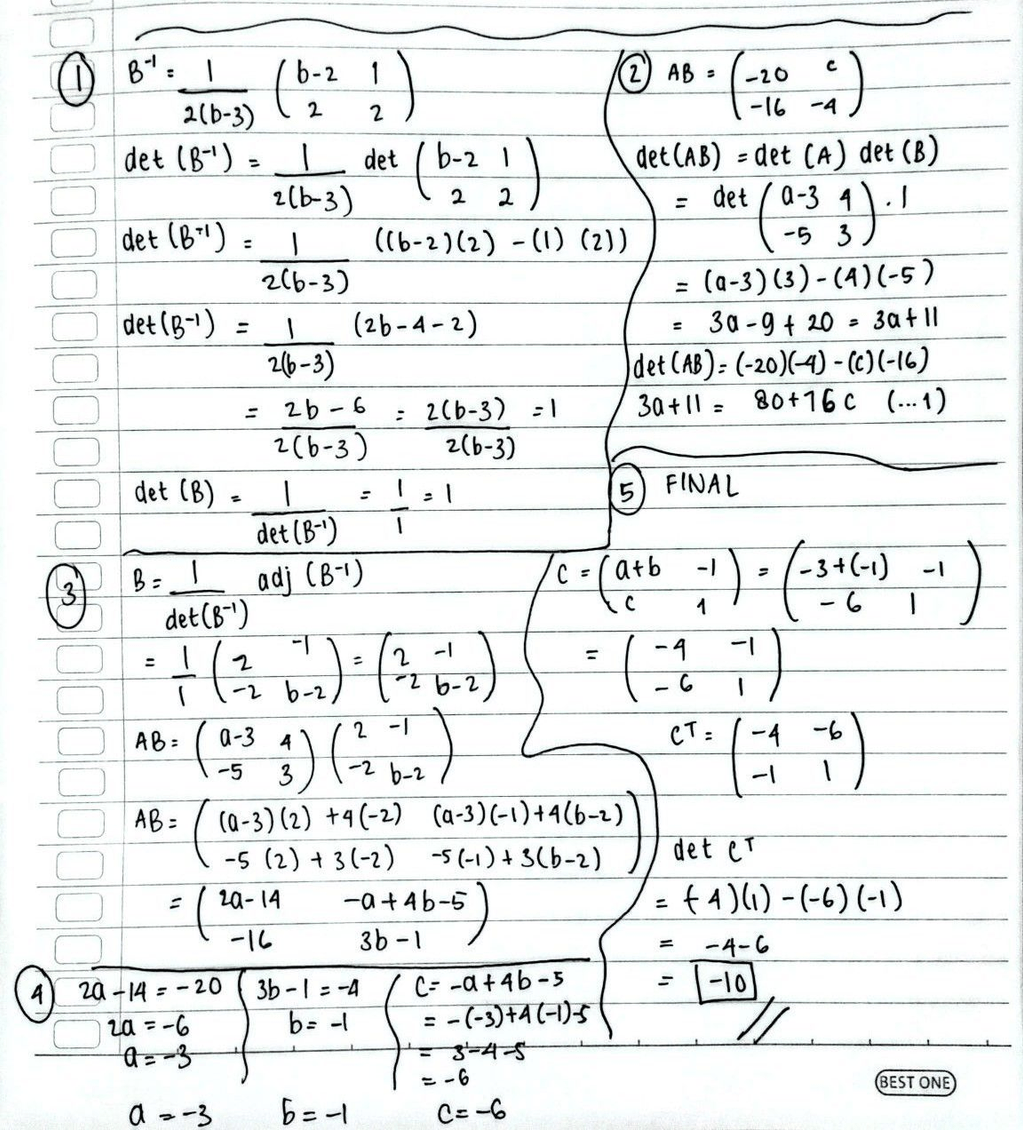 ① B⁻¹ = 1/(2(b-3)) (b-2 1; 2 2)
det (B⁻¹) = 1/(2(b-3)) det (b-2 1; 2 2)
det (B⁻¹) = 1/(2(b-3)) ((b-2)(2) - (1) (2))
det (B⁻¹) = 1/(2(b-3)) (2b-4-2)
= (2b-6)/(2(b-3)) = (2(b-3))/(2(b-3)) = 1
det (B) = 1/(det (B⁻¹)) = 1/1 = 1
② AB = (-20 c; -16 -4)
det (AB) = det (A) det (B)
= det (a-3 4; -5 3) . 1
= (a-3)(3) - (4)(-5)
= 3a-9+20 = 3a+11
det (AB) = (-20)(-4) - (c)(-16)
3a+11 = 80+16c (...1)
③ B = 1/(det (B⁻¹)) adj (B⁻¹)
= 1/1 (2 -1; -2 b-2) = (2 -1; -2 b-2)
AB = (a-3 4; -5 3) (2 -1; -2 b-2)
AB = ((a-3)(2) +4(-2) (a-3)(-1)+4(b-2); -5 (2) + 3(-2) -5(-1) + 3(b-2))
= (2a-14 -a+4b-5; -16 3b-1)
④ 2a-14 = -20
2a = -6
a = -3
3b-1 = -4
b = -1
c = -a+4b-5
= -(-3)+4(-1)-5
= 3-4-5
= -6
a = -3 b = -1 c = -6
⑤ FINAL
C = (a+b -1; c 1) = (-3+(-1) -1; -6 1)
= (-4 -1; -6 1)
Cᵀ = (-4 -6; -1 1)
det Cᵀ
= (-4)(1) - (-6)(-1)
= -4-6
= -10
BEST ONE